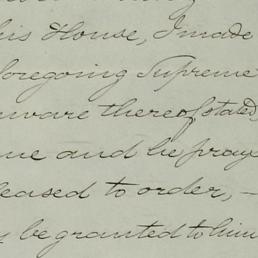 his House, I made
foregoing Supreme
aware thereof, stated,
me and he prays
leased to order, —
be granted to him